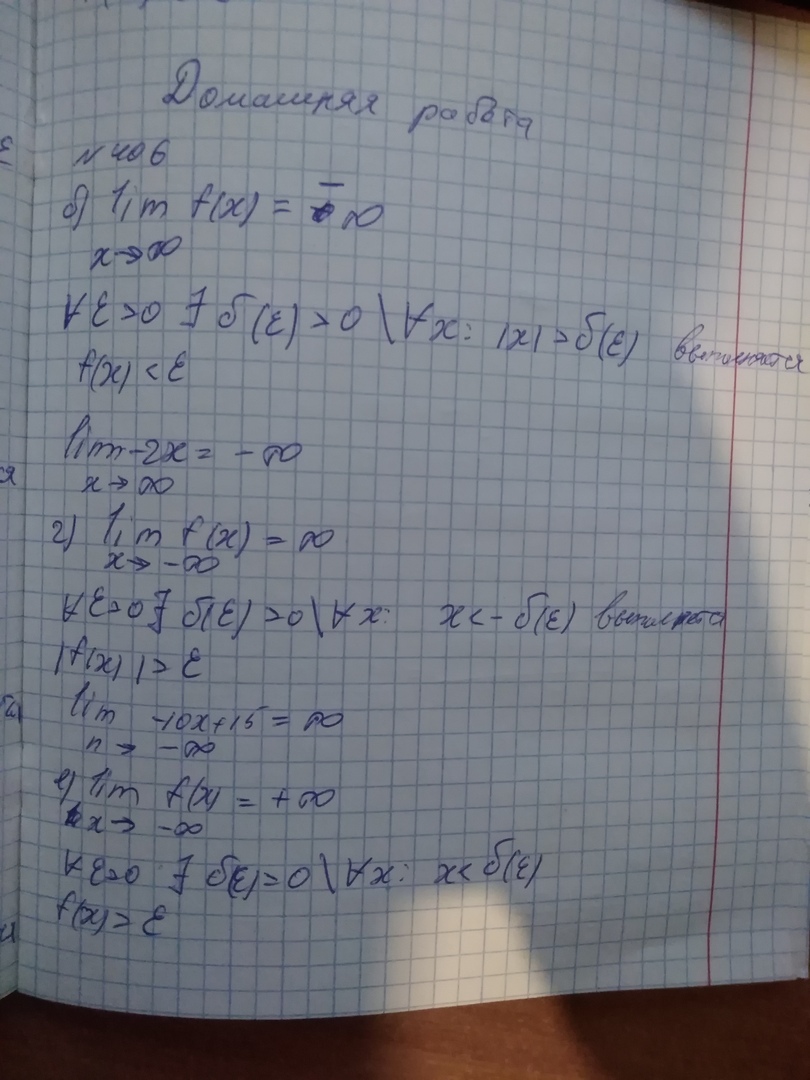 Домашняя работа
№406
б) lim f(x) = -∞
x→∞
∀ε>0 ∃ δ(ε)>0 \ ∀x: |x|>δ(ε) выполняется
f(x)<ε
lim -2x = -∞
x→∞
г) lim f(x) = ∞
x→ -∞
∀ε>0 ∃ δ(ε)>0 \ ∀x: x<-δ(ε) выполняется
|f(x)|>ε
lim -10x+15 = ∞
n→ -∞
е) lim f(x) = +∞
x→ -∞
∀ε>0 ∃ δ(ε)>0 \ ∀x: x<δ(ε)
f(x)>ε